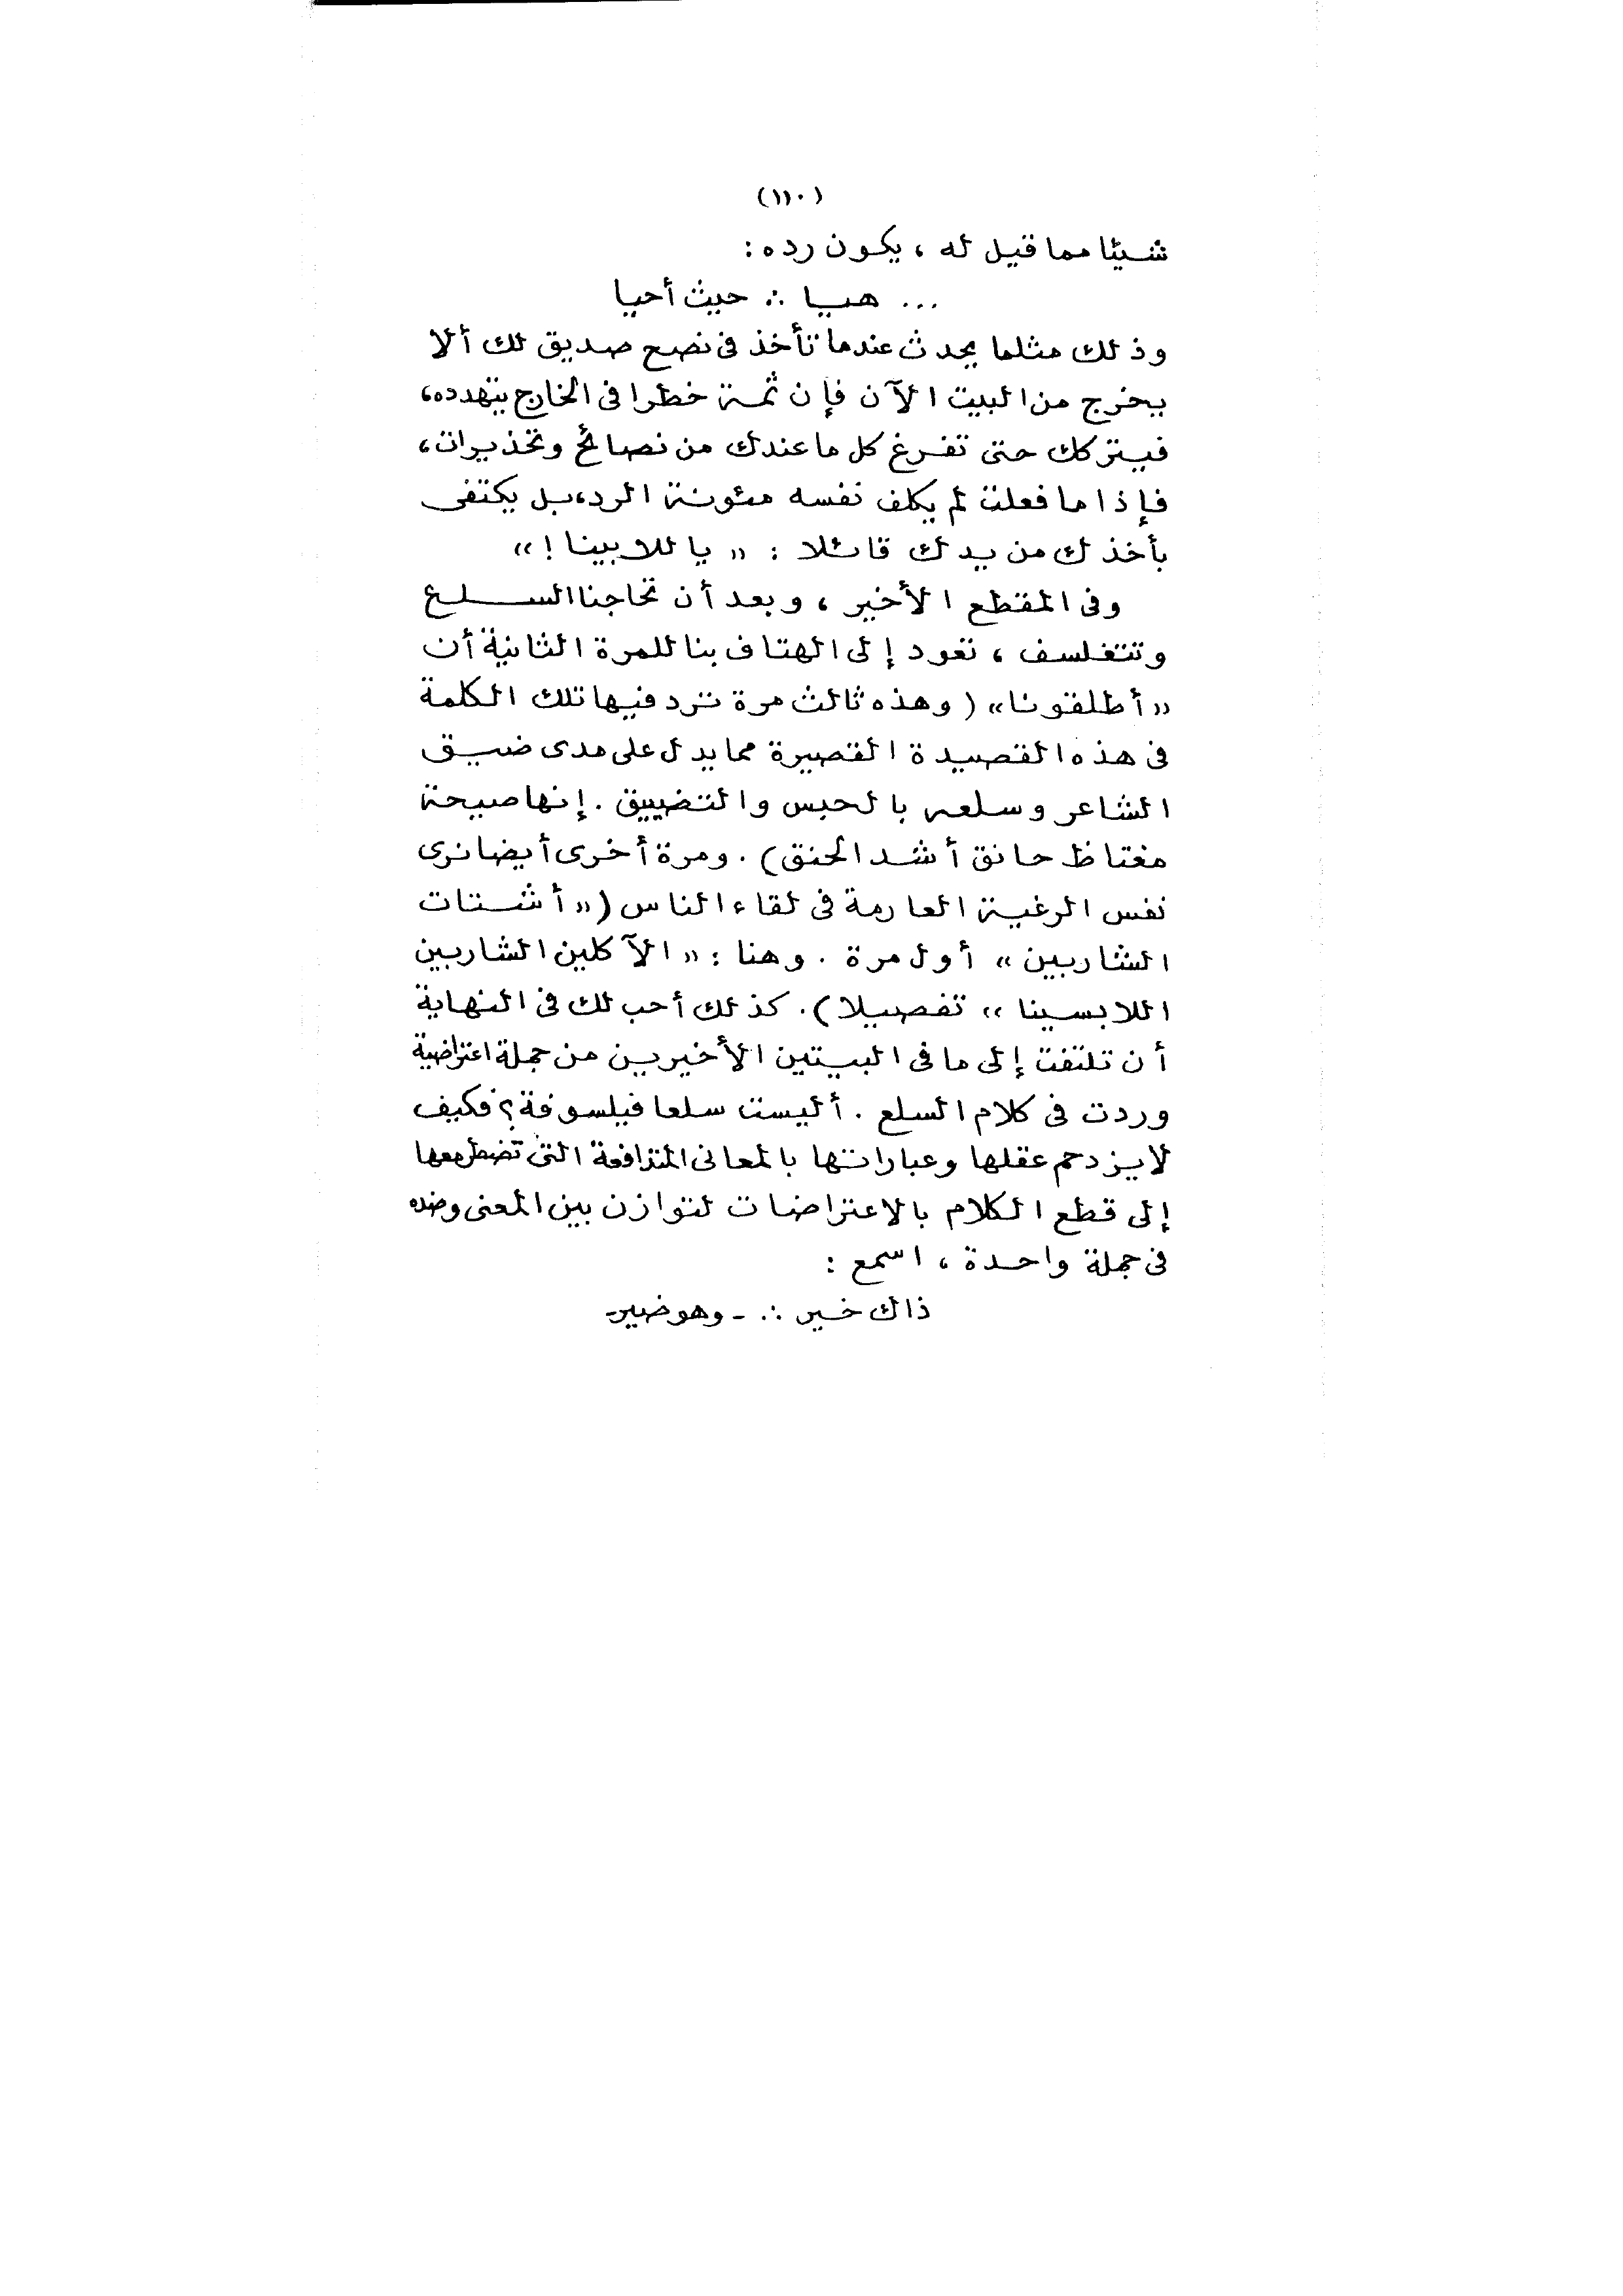 (١١٠)
شيئا مما قيل له ، يكون رده :
... هيا ∴ حيث أحيا
وذلك مثلما يحدث عندما تأخذ فى نصح صديق لك ألا
يخرج من البيت الآن فإن ثمة خطرا فى الخارج يتهدده،
فيتركك حتى تفرغ كل ما عندك من نصائح وتحذيرات،
فإذا ما فعلت لم يكلف نفسه مئونة الرد، بل يكتفى
بأخذك من يدك قائلا : « ياللا بينا ! »
وفى المقطع الأخير ، وبعد أن تحاجنا السلع
وتتفلسف ، تعود إلى الهتاف بنا للمرة الثانية أن
« أطلقونا » ( وهذه ثالث مرة ترد فيها تلك الكلمة
فى هذه القصيدة القصيرة مما يدل على مدى ضيق
الشاعر وسلعه بالحبس والتضييق . إنها صيحة
مغتاظ حانق أشد الحنق) . ومرة أخرى أيضا نرى
نفس الرغبة العارمة فى لقاء الناس ( « أشتات
الشاربين » أول مرة . وهنا : « الآكلين الشاربين
اللابسينا » تفصيلا ) . كذلك أحب لك فى النهاية
أن تلتفت إلى ما فى البيتين الأخيرين من جملة اعتراضية
وردت فى كلام السلع . أليست سلعا فيلسوفة ؟ فكيف
لا يزدحم عقلها وعباراتها بالمعانى المتدافعة التى تضطر معها
إلى قطع الكلام بالاعتراضات لتوازن بين المعنى وضده
فى جملة واحدة ، اسمع :
ذاك خير ∴ - وهو ضير -